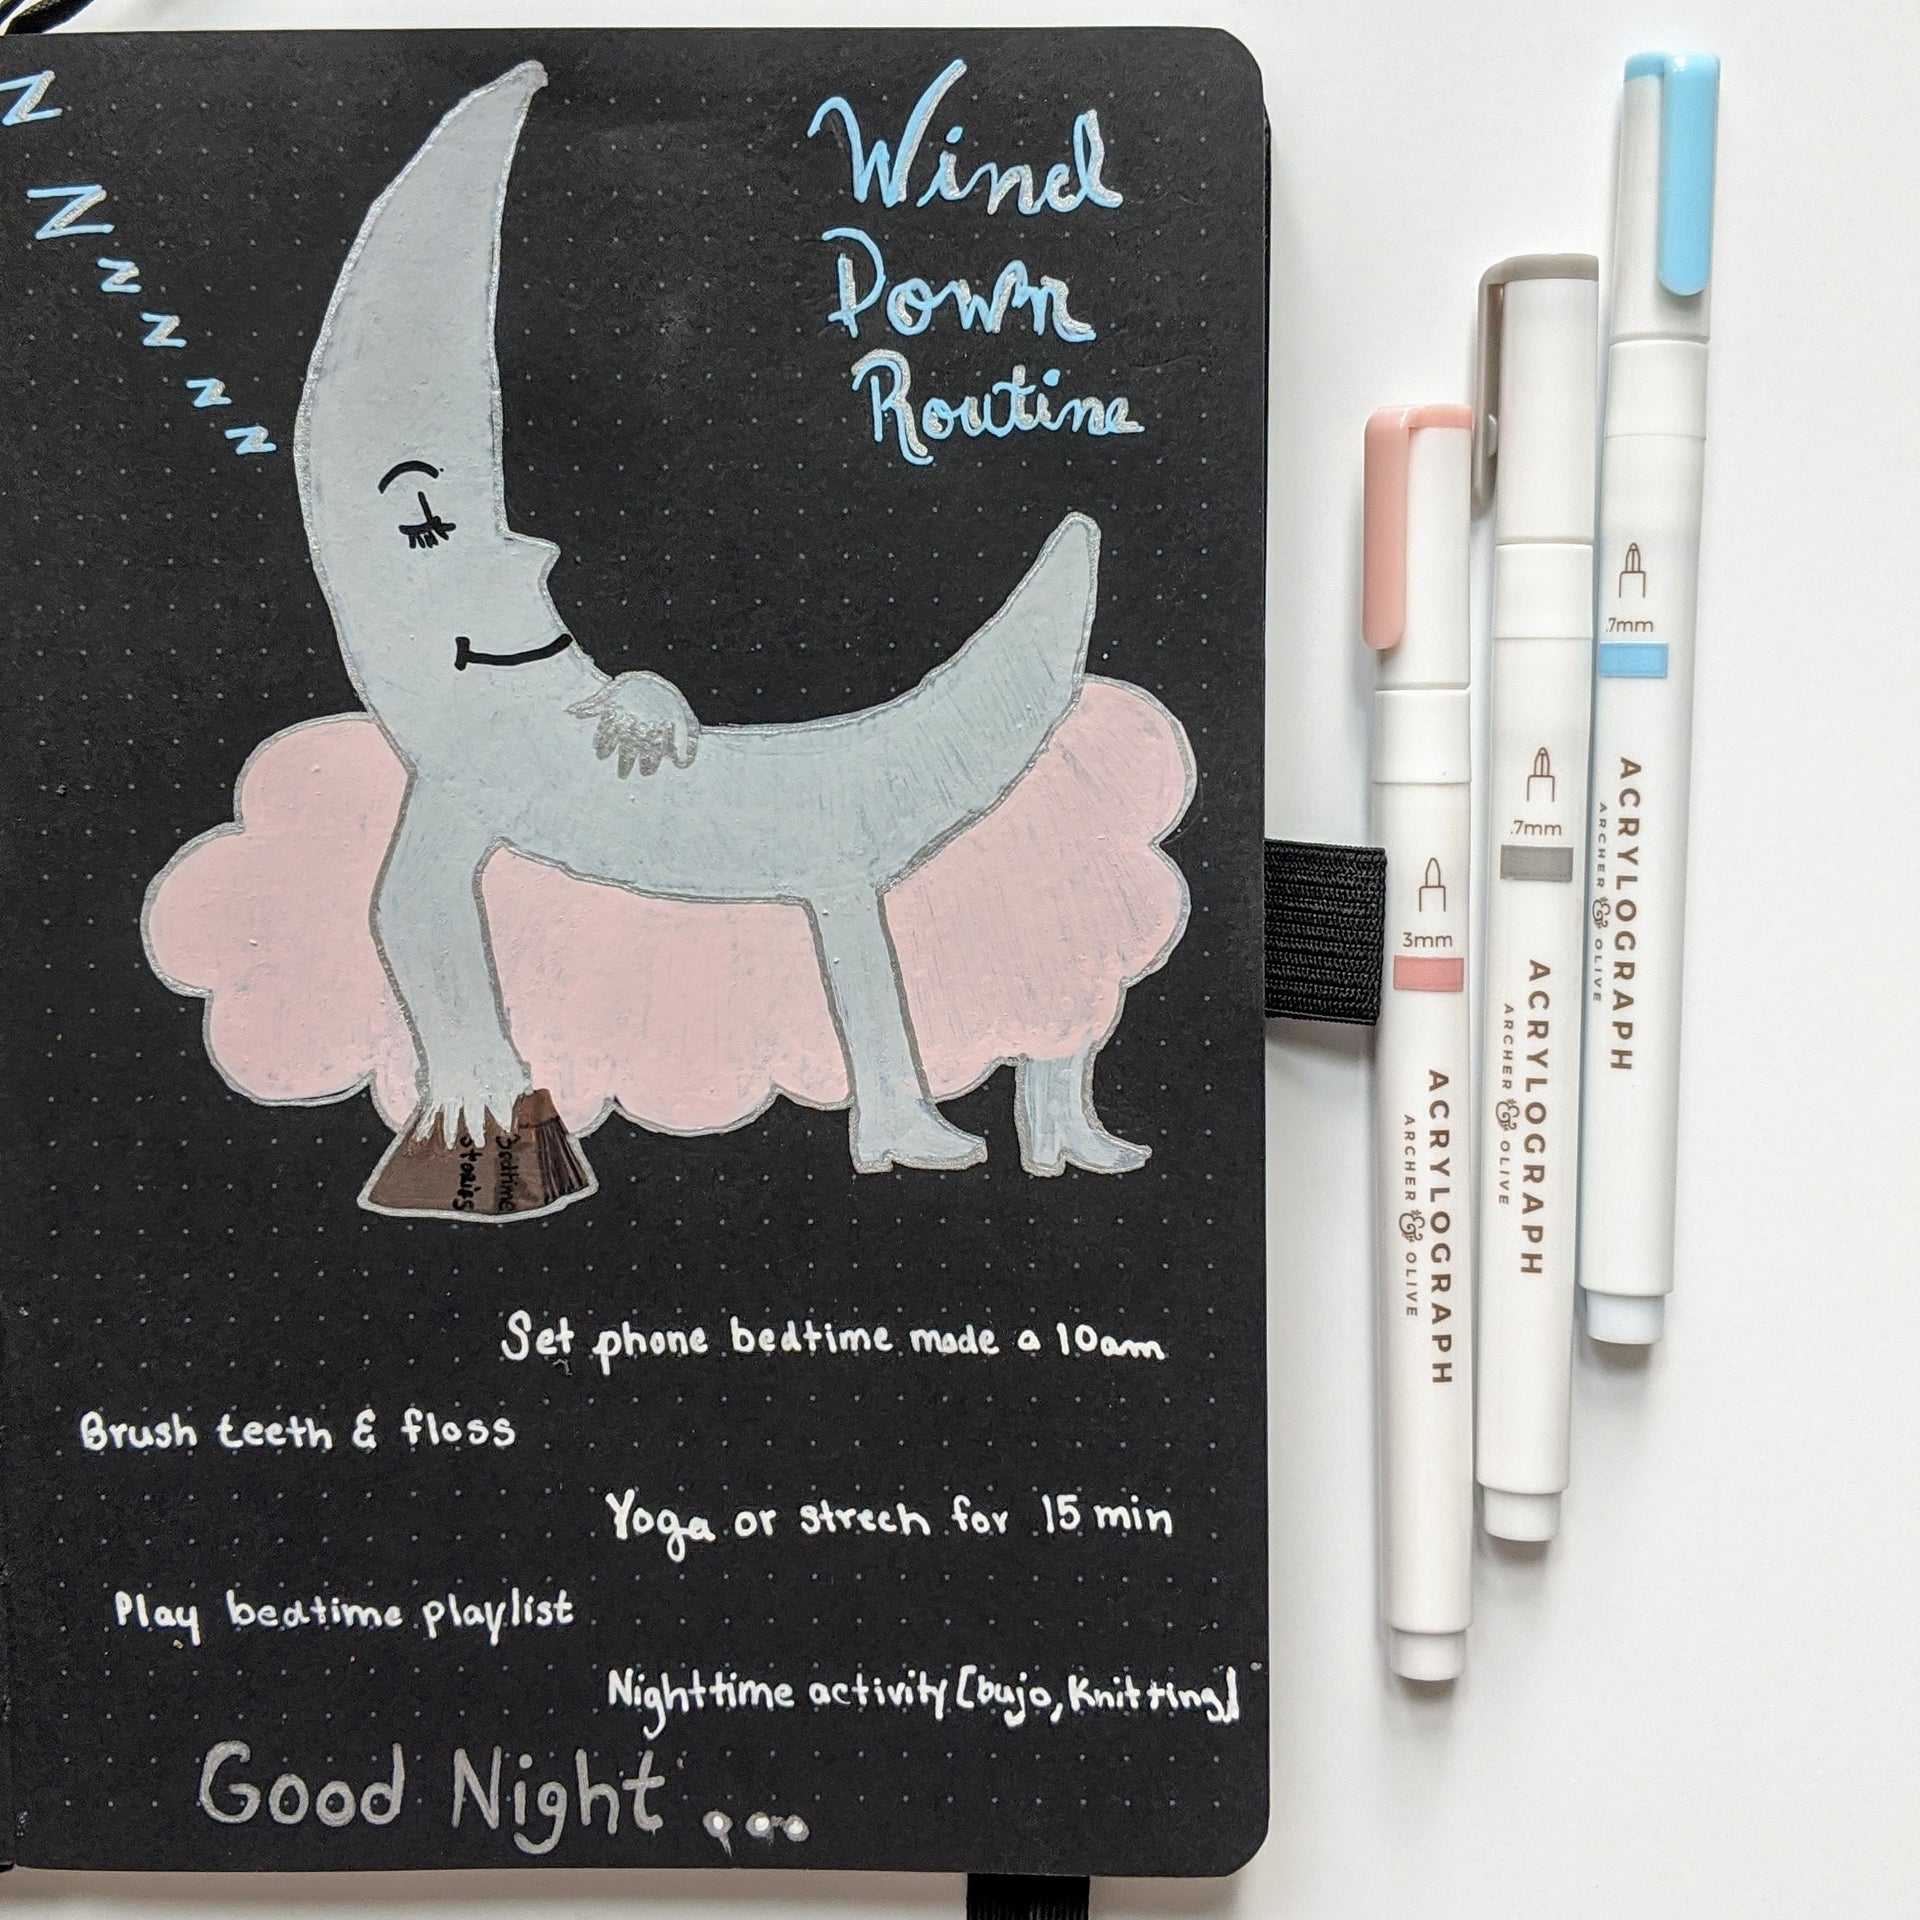 Z
Z
Z
Z
Z
Z
Wind
Down
Routine
Stories
Bedtime
Set phone bedtime mode a 10am
Brush teeth & floss
Yoga or strech for 15 min
Play bedtime playlist
Nighttime activity [bujo, Knitting]
Good Night ...
3mm
ACRYLOGRAPH
ARCHER & OLIVE
.7mm
ACRYLOGRAPH
ARCHER & OLIVE
.7mm
ACRYLOGRAPH
ARCHER & OLIVE